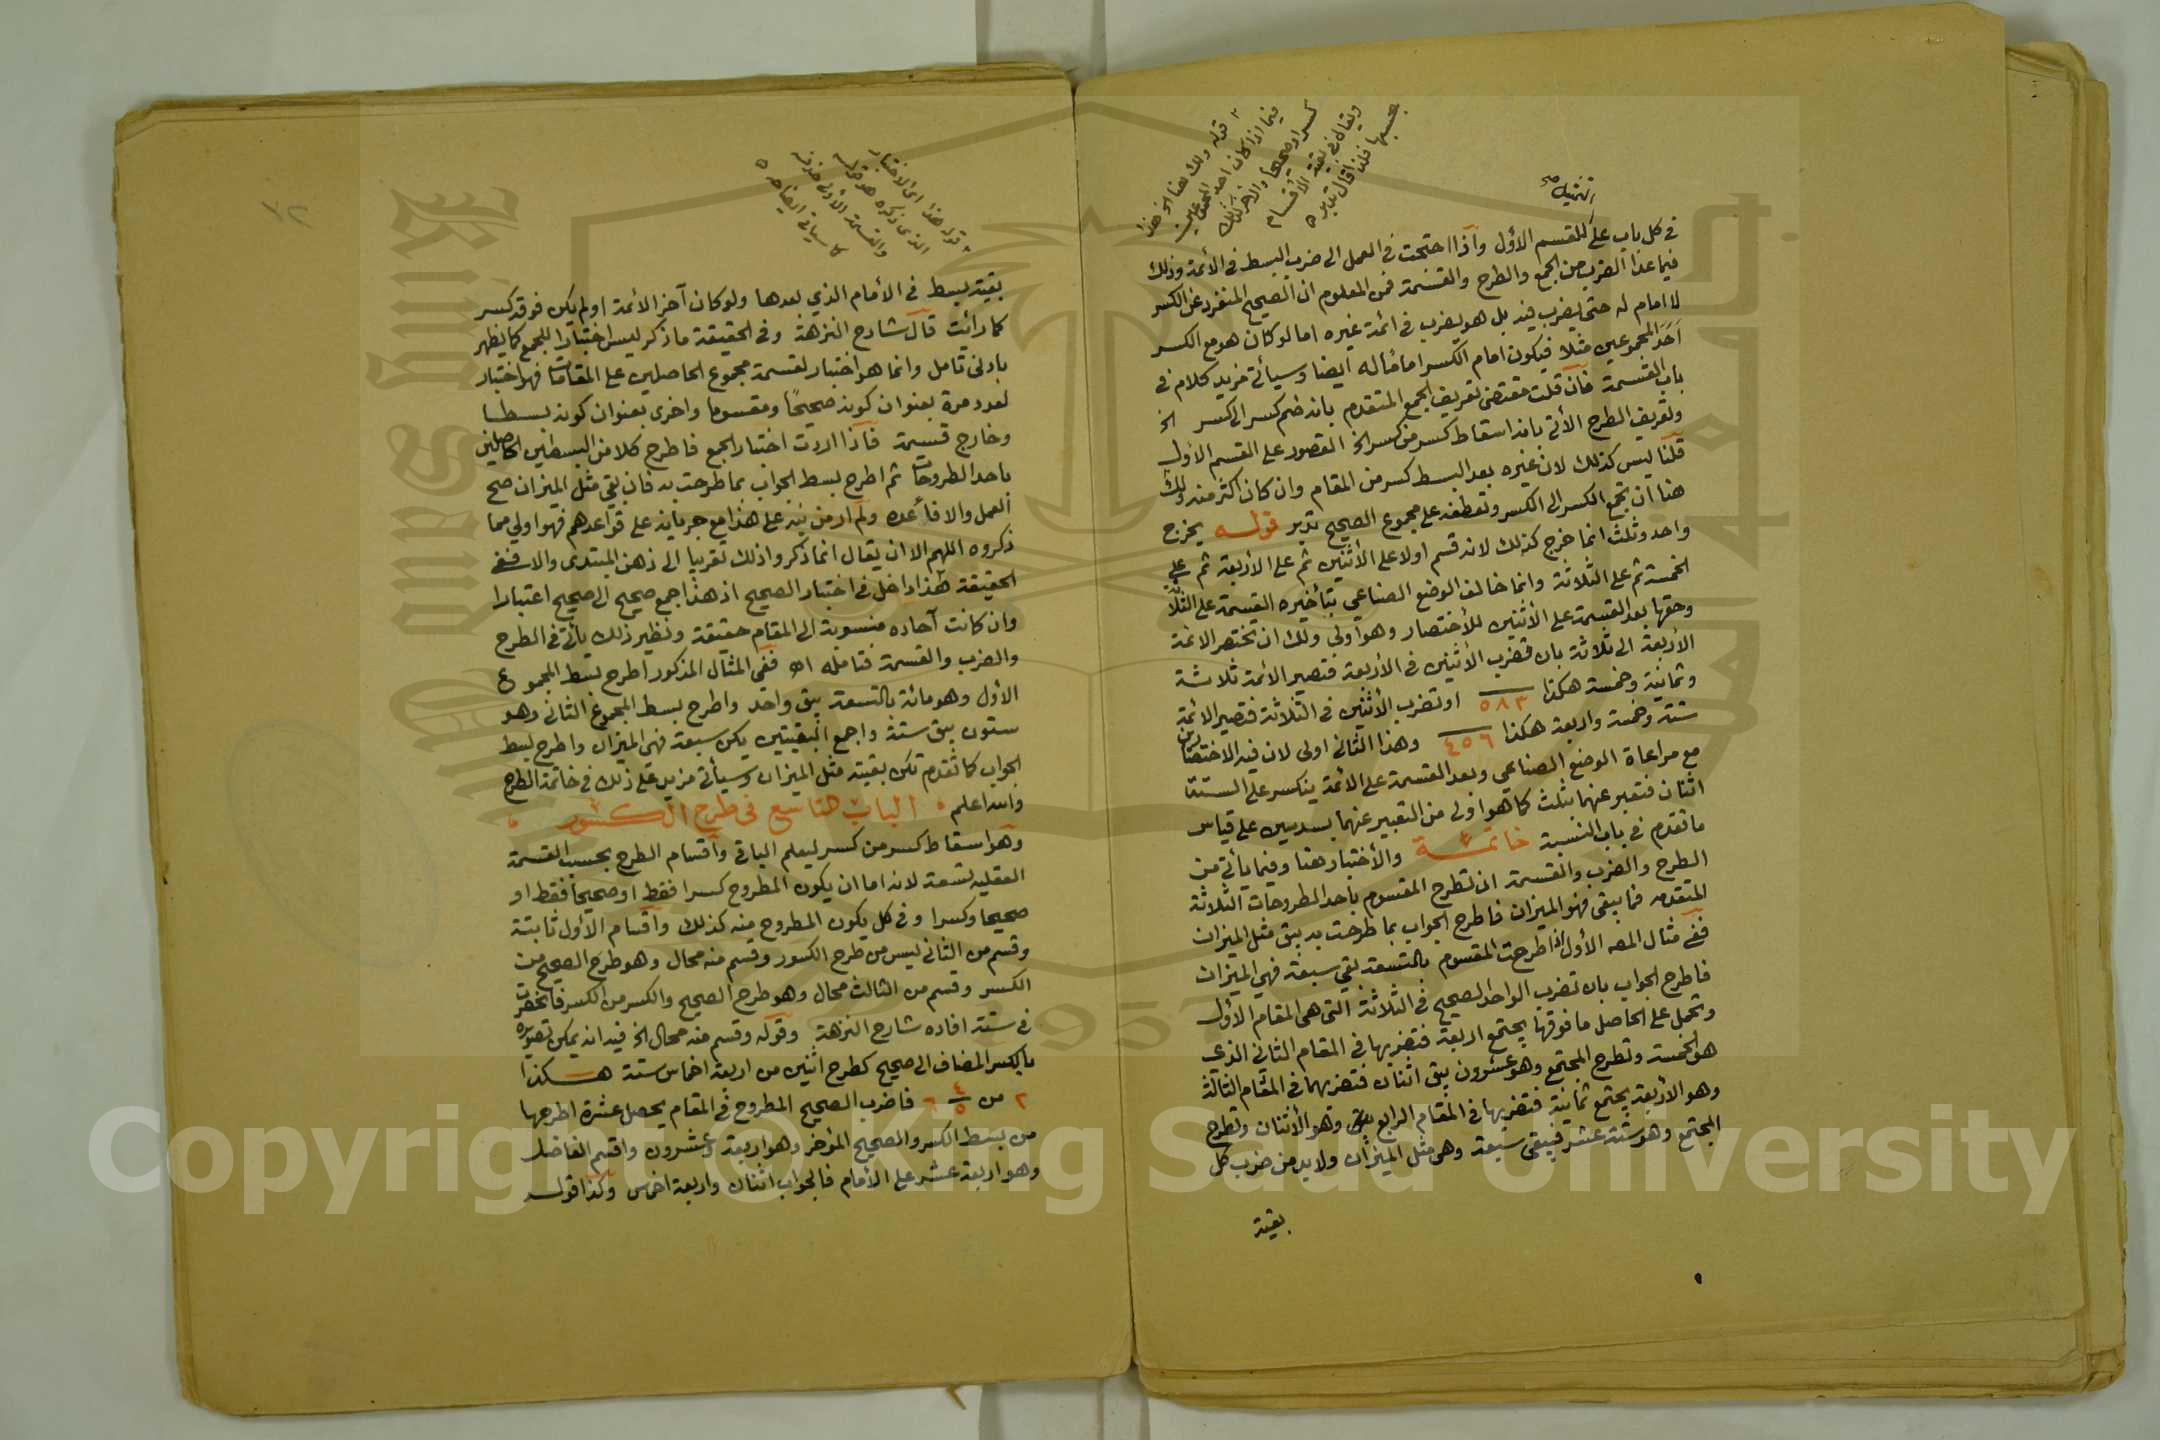 ٢ قوله ولك هنا الخ هذا
فيما اذا كان احد المجموعين
كسرا وصحيحا والاخر كذلك
ويقال في بقية الاقسام
بحسبها فلذا قال تدبر ه
في كل باب على للقسم الأول وآذا احتجت في العمل الى ضرب البسط في الأئمة وذلك
فيما عدا الضرب من الجمع والطرح والقسمة فمن المعلوم ان الصحيح المنفرد عن الكسر
لا امام له حتى يضرب فيه بل هو يضرب في ائمة غيره اما لو كان هو مع الكسر
أحد المجموعين مثلا فيكون امام الكسر اماما له ايضا وسيأتي مزيد كلام في
باب القسمة فان قلت مقتضى تعريف الجمع المتقدم بانه ضم كسر الى كسر الخ
وتعريف الطرح الأتي بانه اسقاط كسر من كسر الخ القصور على القسم الأول
قلنا ليس كذلك لان غيره بعد البسط كسر من المقام وان كان اكثر منه ولك
هنا ان تجمع الكسر الى الكسر وتعطفه على مجموع الصحيح تدبر قوله يخرج
واحد وثلث انما خرج كذلك لانه قسم اولا على الأثنين ثم على الأربعة ثم على
الخمسة ثم على الثلاثة وانما خالف الوضع الصناعي بتأخيره القسمة على الثلاثة
وحقها بعد القسمة على الأثنين للأختصار وهو أولى ولك ان تختصر الائمة
الأربعة الى ثلاثة بان تضرب الأثنين في الأربعة فتصير الائمة ثلاثة
وثمانية وخمسة هكذا ٥٨٣ او تضرب الأثنين في الثلاثة فتصير الائمة
ستة وخمسة واربعة هكذا ٤٥٦ وهذا الثاني اولى لان فيه الاختصار
مع مراعاة الوضع الصناعي وبعد القسمة على الائمة ينكسر على الستة
اثنان فتعبر عنهما بثلث كما هو اولى من التعبير عنهما بسدسين على قياس
ما تقدم في باب النسبة خاتمة والأختبار هنا وفيما يأتي من
الطرح والضرب والقسمة ان تطرح المقسوم باحد الطروحات الثلاثة
المتقدمة فما يبقى فهو الميزان فاطرح الجواب بما طرحت به يبق مثل الميزان
ففي مثال المصه الأول اذا طرحت المقسوم بالتسعة بقي سبعة فهي الميزان
فاطرح الجواب بان تضرب الواحد الصحيح في الثلاثة التي هي المقام الأول
وتحمل على الحاصل ما فوقها يجتمع اربعة فتضربها في المقام الثاني الذي
هو الخمسة وتطرح المجتمع وهو عشرون يبق اثنان فتضربهما في المقام الثالث
وهو الأربعة يجتمع ثمانية فتضربها في المقام الرابع وهو الأثنان وتطرح
المجتمع وهو ستة عشر فيبقى سبعة وهي مثل الميزان ولابد من ضرب كل
بقية
٧٢
٢ قوله هذا اي الاختبار
الذي ذكره هو قوله
والقسمة الأولى حذفه
كما سيأتي ايضاحه ه
بقية بسط في الأمام الذي بعدها ولو كان آخر الائمة او لم يكن فوقه كسر
كما رأيت قال شارح النزهة وفي الحقيقة ما ذكر ليس اختبارا للجمع كما يظهر
بادنى تامل وانما هو اختبار لقسمة مجموع الحاصلين على المقامات فهو اختبار
لعدد مرة بعنوان كونه صحيحًا ومقسوما واخرى بعنوان كونه بسطا
وخارج قسمة فاذا اردت اختبار الجمع فاطرح كلا من البسطين الحاصلين
باحد الطروحات ثم اطرح بسط الجواب بما طرحت به فان بقي مثل الميزان صح
العمل والا فأعده ولم ار من نبه على هذا مع جريانه على قواعدهم فهو اولى مما
ذكروه اللهم الا ان يقال انما ذكروا ذلك تقريبا الى ذهن المبتدى والا ففي
الحقيقة هذا داخل في اختبار الصحيح اذ هذا جمع صحيح الى صحيح اعتبارا
وان كانت آحاده منسوبة الى المقام حقيقة ونظير ذلك يأتي في الطرح
والضرب والقسمة فتامله اه ففي المثال المذكور اطرح بسط المجموع
الأول وهو مائة بالتسعة يبق واحد واطرح بسط المجموع الثاني وهو
ستون يبق ستة واجمع البقيتين يكن سبعة فهي الميزان واطرح بسط
الجواب كما تقدم تكن بقيته مثل الميزان وسيأتي مزيد على ذلك في خاتمة الطرح
والله اعلم ه الباب التاسع في طرح الكسور ه
وهو اسقاط كسر من كسر ليعلم الباقي وأقسام الطرح بحسب القسمة
العقلية تسعة لانه اما ان يكون المطروح كسرا فقط او صحيحا فقط او
صحيحا وكسرا وفي كل يكون المطروح منه كذلك وأقسام الأول ثابتة
وقسم من الثاني ليس من طرح الكسور وقسم منه محال وهو طرح الصحيح من
الكسر وقسم من الثالث محال وهو طرح الصحيح والكسر من الكسر فانحصرت
في ستة افاده شارح النزهة وقوله وقسم منه محال الخ فيه انه يمكن تصويره
بالكسر المضاف الى صحيح كطرح اثنين من اربعة اخماس ستة هكذا
٢ من ٤/٥ ٦ فاضرب الصحيح المطروح في المقام يحصل عشرة اطرحها
من بسط الكسر والصحيح المؤخر وهو اربعة وعشرون واقسم الفاضل
وهو اربعة عشر على الأمام فالجواب اثنان واربعة اخماس وكذا قوله
Copyright © King Saud University